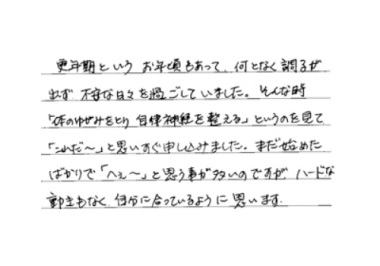 更年期という お年頃もあって、何となく調子が
出ず 不安な日々を過ごしていました。そんな時
「体のゆがみをとり 自律神経を整える」というのを見て
「これだ〜」と思いすぐ申し込みました。まだ始めた
ばかりで「へぇ〜」と思う事が多いのですが ハードな
動きもなく 自分に合っているように 思います。